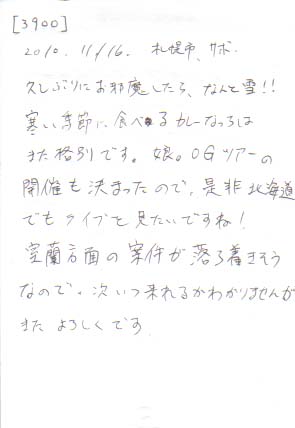 [3900]
2010. 11/16. 札幌市、サボ.
久しぶりにお邪魔したら、なんと雪!!
寒い季節に食べるカレーなっちは
また格別です。娘。OGツアーの
開催も決まったので、是非北海道
でもライブを見たいですね!
室蘭方面の案件が落ち着きそう
なので、次いつ来れるかわかりませんが
またよろしくです.